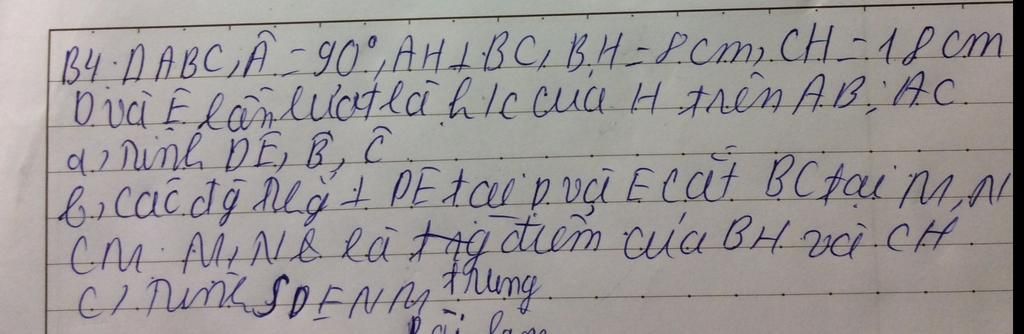 B4. ΔABC, Â = 90°, AH ⊥ BC, BH = 8 cm, CH = 18 cm
D và E lần lượt là h/c của H trên AB, AC.
a, Tính DE, B̂, Ĉ
b, các đg thg ⊥ DE tại D và E cắt BC tại M, N
CM. M, N là điểm của BH và CH
trung
c) Tính SDENM
Bài làm